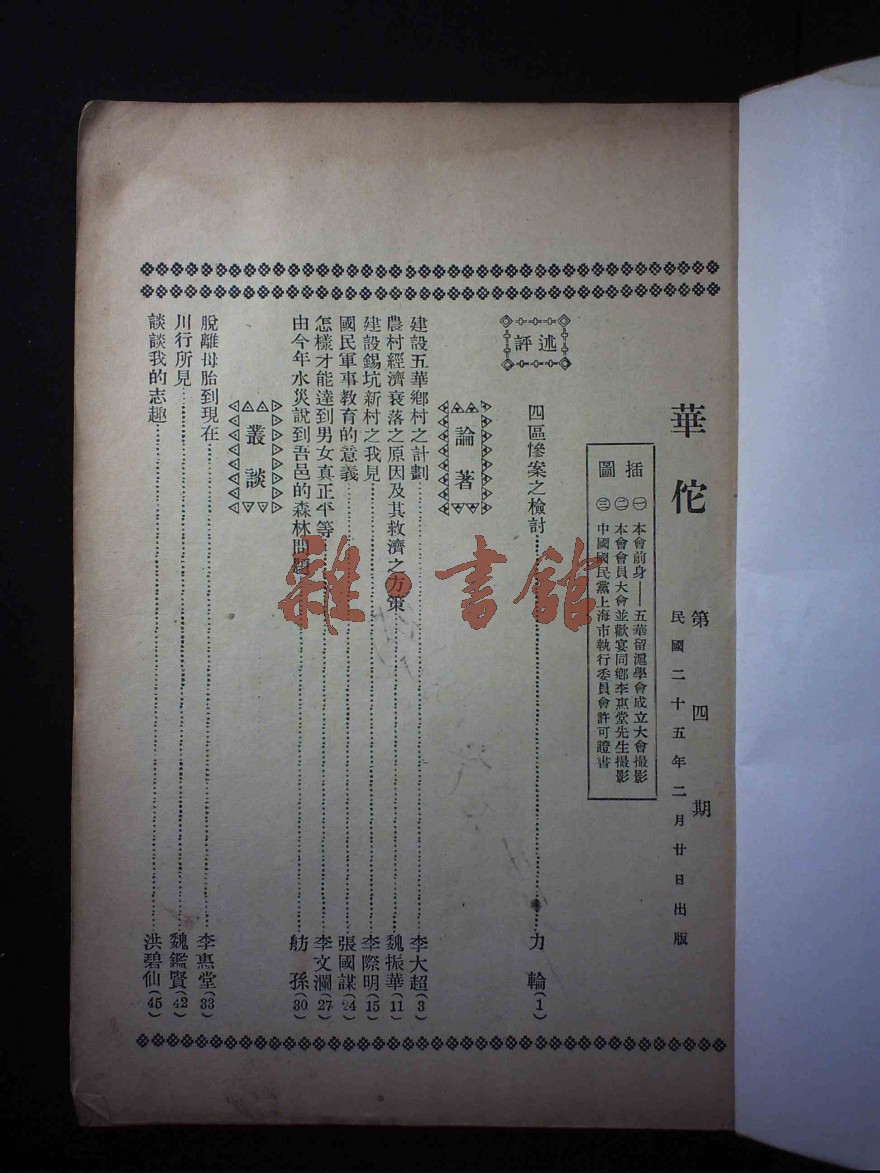 華佗
第四期
民國二十五年二月廿日出版
插圖
㊀本會前身——五華留滬學會成立大會撮影
㊁本會會員大會並歡宴同鄉李惠堂先生撮影
㊂中國國民黨上海市執行委員會許可證書
述評
四區慘案之檢討……力輪(1)
論著
建設五華鄉村之計劃……李大超(3)
農村經濟衰落之原因及其救濟之方策……魏振華(11)
建設錫坑新村之我見……李際明(15)
國民軍事教育的意義……張國謀(24)
怎樣才能達到男女真正平等……李文瀾(27)
由今年水災說到吾邑的森林問題……舫孫(30)
叢談
脫離母胎到現在……李惠堂(33)
川行所見……魏鑑賢(42)
談談我的志趣……洪碧仙(45)
雜·書館